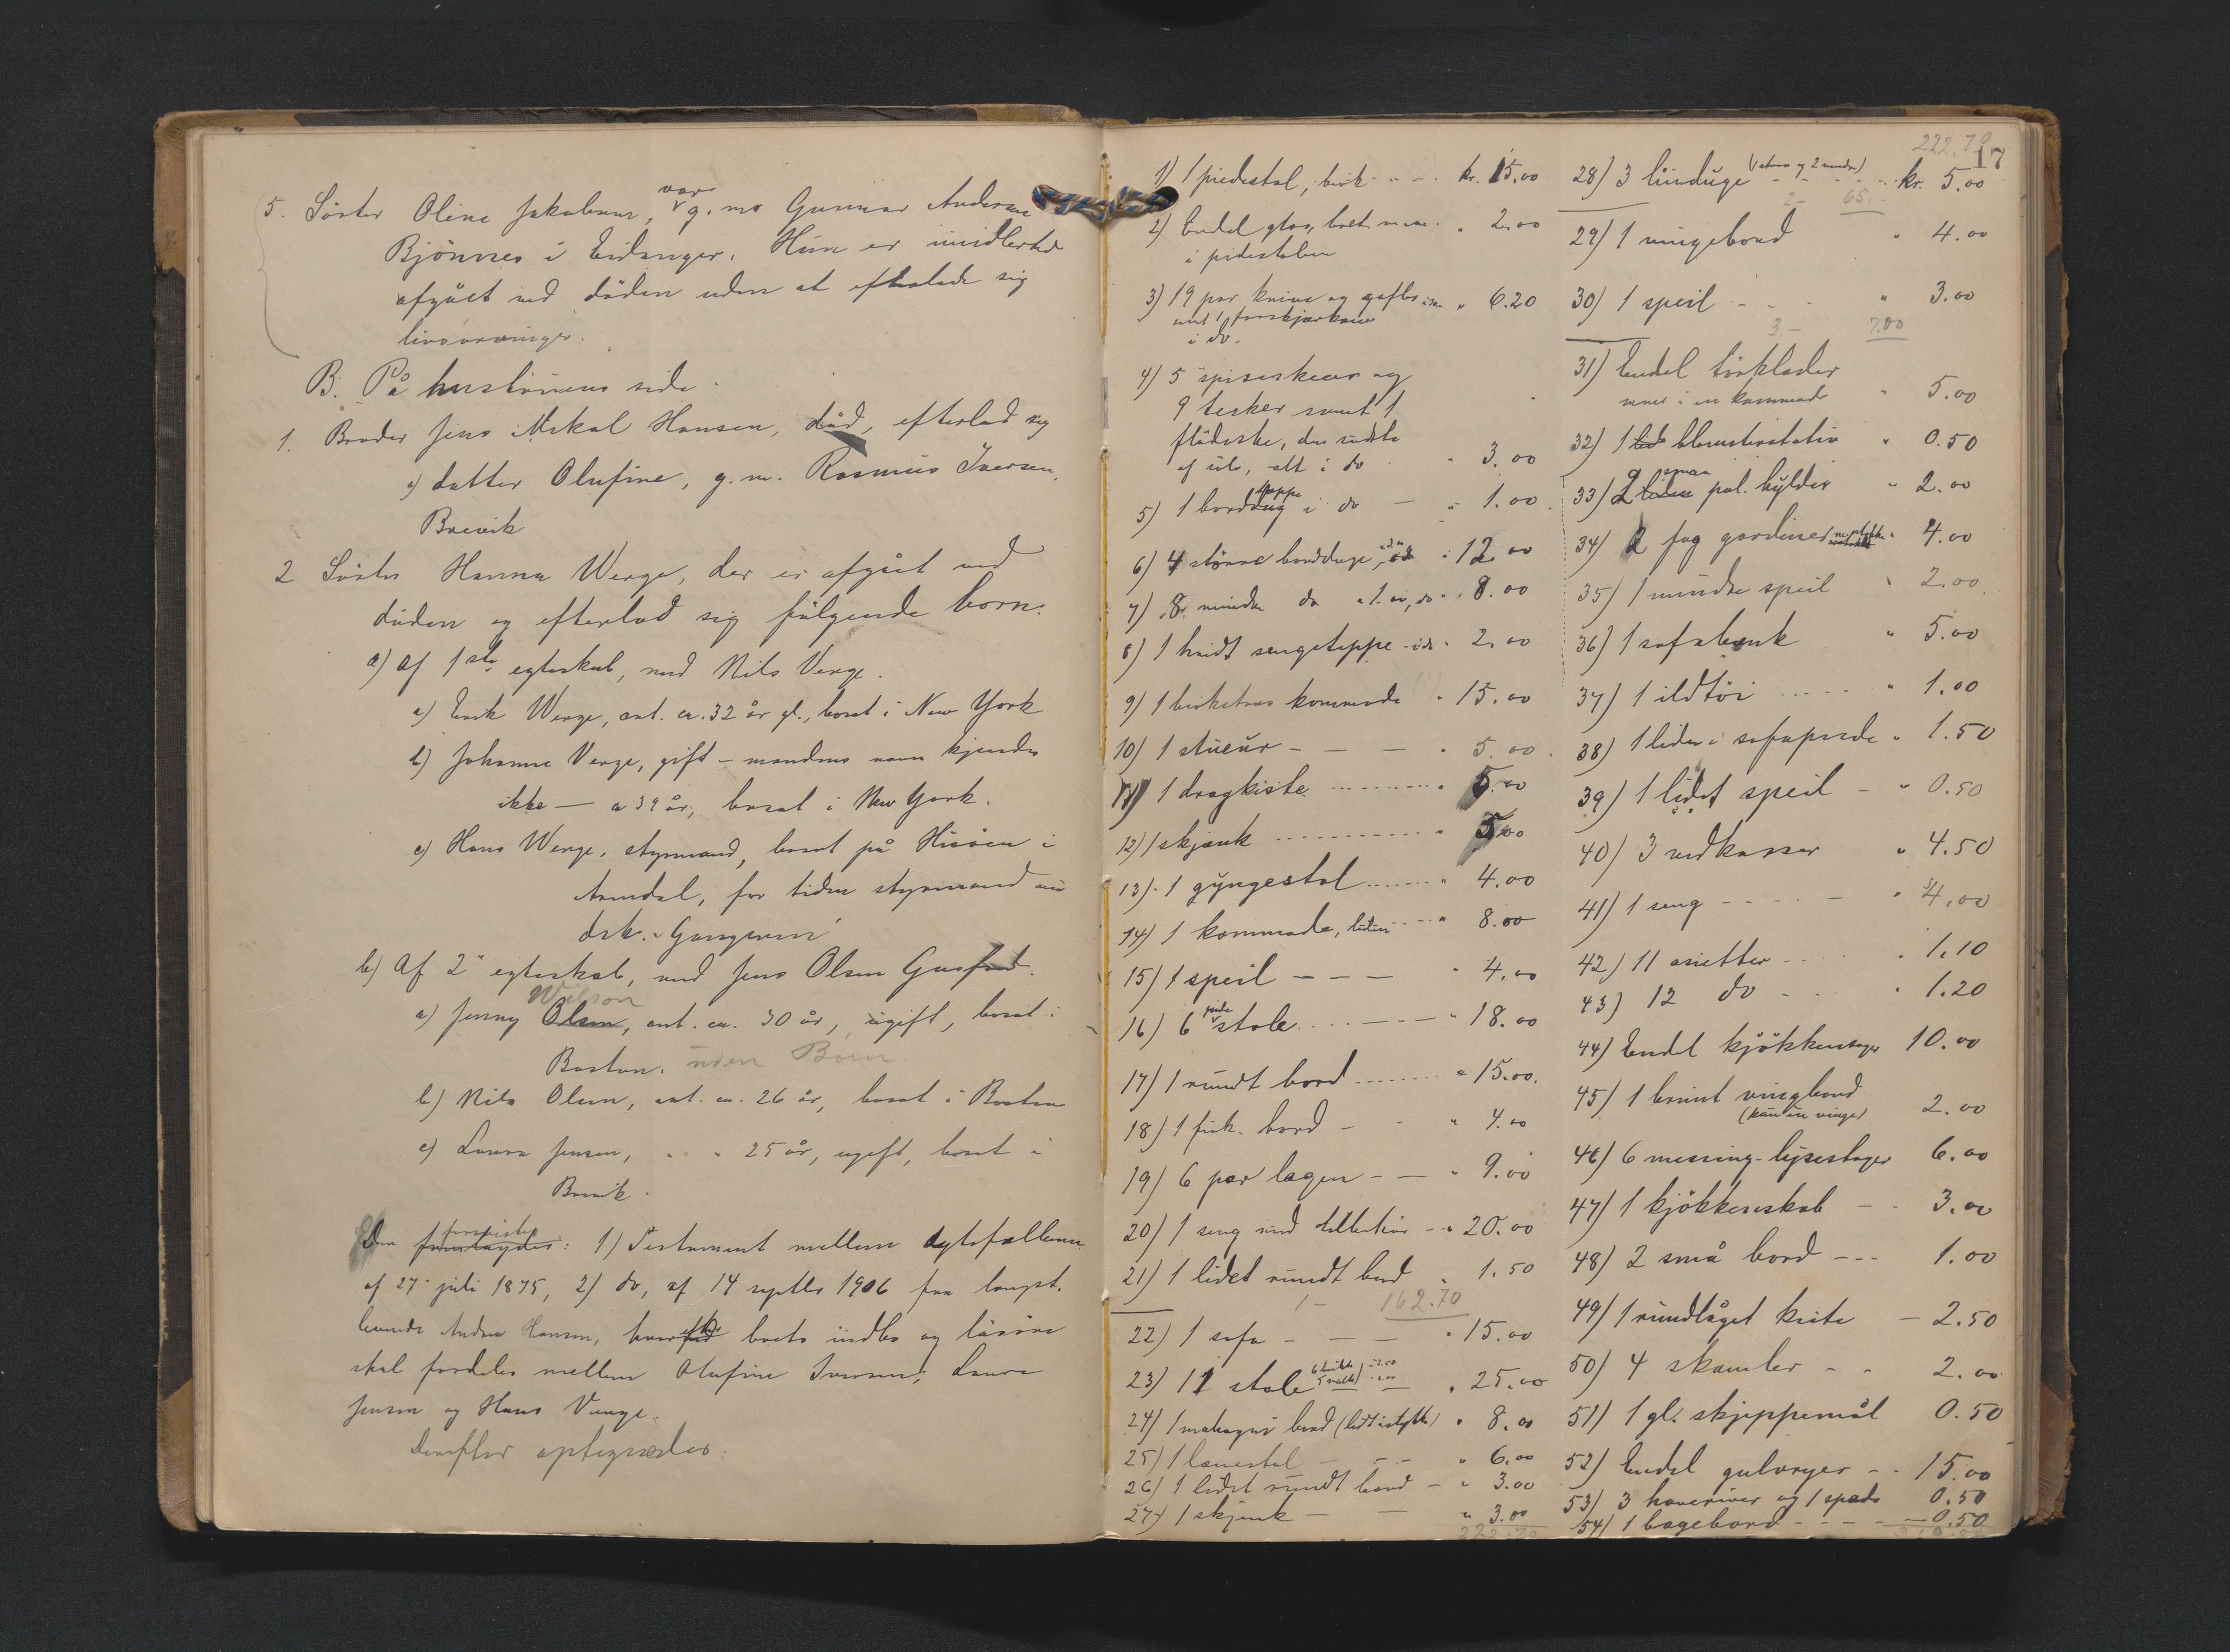 5. Søster Oline Jakobsen, var g. m. Gunnar Andersen
Bjønnes i Eidanger. Hun er imidlertid
afgået ved døden uden at efterlade sig
livsarvinger.
B. På hustruens side.
1. Broder Jens Mikal Hansen, død, efterlod sig
a) datter Olufine, g. m. Rasmus Iversen,
Brevik
2 Søster Hanna Werge, der er afgået ved
døden og efterlod sig følgende børn:
a) Af 1ste egteskab, med Nils Verge.
a) Erik Werge, ant. ca. 32 år gl., bosat i New York
b) Johanne Verge, gift – mandens navn kjendes
ikke – ca 39 år, bosat i New York.
c) Hans Werge, styrmand, bosat på Hisøen i
Arendal, for tiden styrmand
b) Af 2' egteskab, med Jens Olsen
a) Jenny Olsen Wilson, ant. ca. 30 år, ugift, bosat i
Boston. uden Børn
b) Nils Olsen, ant. ca. 26 år, bosat i Boston
c) Laura Jensen, " " 25 år, ugift, bosat i
Brevik.
Der forevistes: 1) Testament mellem egtefællerne
af 27' juli 1875, 2) do, af 14 septbr 1906 fra længst-
levende Andrea Hansen, hvorefter boets indbo og løsøre
skal fordeles mellem Olufine Iversen, Laura
Jensen og Hans Verge.
Derefter optegnedes:
1) 1 piedestal, birk - - - kr. 15.00
2) Endel glas, " 2.00
i pidestalen
3) 19 par knive og gafler " 6.20
samt 1 forskjærkniv
i do.
4) 5 spiseskeer og
9 tesker samt 1
flødeske, den sidste
af sølv, alt i do " 3.00
5) 1 bordteppe i do — " 1.00
6) 4 større bordduge " 12.00
7) 8 mindre do a 1.00, do " 8.00
8) 1 hvidt sengeteppe i do " 2.00
9) 1 birketræs kommode " 15.00
10) 1 stueur - — — " 5.00
11) 1 dragkiste " 5.00
12) 1 skjænk " 5.00
13) 1 gyngestol " 4.00
14) 1 kommode, liden " 8.00
15) 1 speil - - — " 4.00
16) 6 stole " 18.00
17) 1 rundt bord " 15.00.
18) 1 firk. bord - - " 4.00
19) 6 par lagen - — " 9.00
20) 1 seng med tilbehør - " 20.00
21) 1 lidet rundt bord " 1.50
1 - 162.70
22) 1 sofa - — — " 15.00
23) 11 stole " 25.00
24) 1 mahogni bord (lidt istykker) " 8.00
25) 1 lænestol - - - " 6.00
26) 1 lidet rundt bord - " 3.00
27) 1 skjænk - — " 3.00
222.70
222.70
17
28) 3 linduge (1 større og 2 mindre) kr. 5.00
2 - 65.-
29) 1 vingebord " 4.00
30) 1 speil - - " 3.00
3 - 7.00
31) Endel tørklæder
mere i en kommode " 5.00
32) 1 blomsterstativ " 0.50
33) 2 smaa pol. hylder " 2.00
34) 2 fag gardiner " 4.00
35) 1 mindre speil " 2.00
36) 1 sofabænk " 5.00
37) 1 ildtøi " 1.00
38) 1 liden sofapude " 1.50
39) 1 lidet speil - " 0.50
40) 3 vedkasser " 4.50
41) 1 seng - - - - " 4.00
42) 11 asietter - - " 1.10
43) 12 do - - " 1.20
44) Endel kjøkkensager 10.00
45) 1 brunt vingebord
(kun en vinge) 2.00
46) 6 messing-lysestager 6.00
47) 1 kjøkkenskab - - 3.00
48) 2 små bord - - - 1.00
49) 1 rundlåget kiste - 2.50
50) 4 skamler - - 2.00
51) 1 gl. skjeppemål 0.50
52) Endel gulvryer - - 15.00
53) 3 haveriver og 1 spade 0.50
54) 1 bagebord - - - 0.50